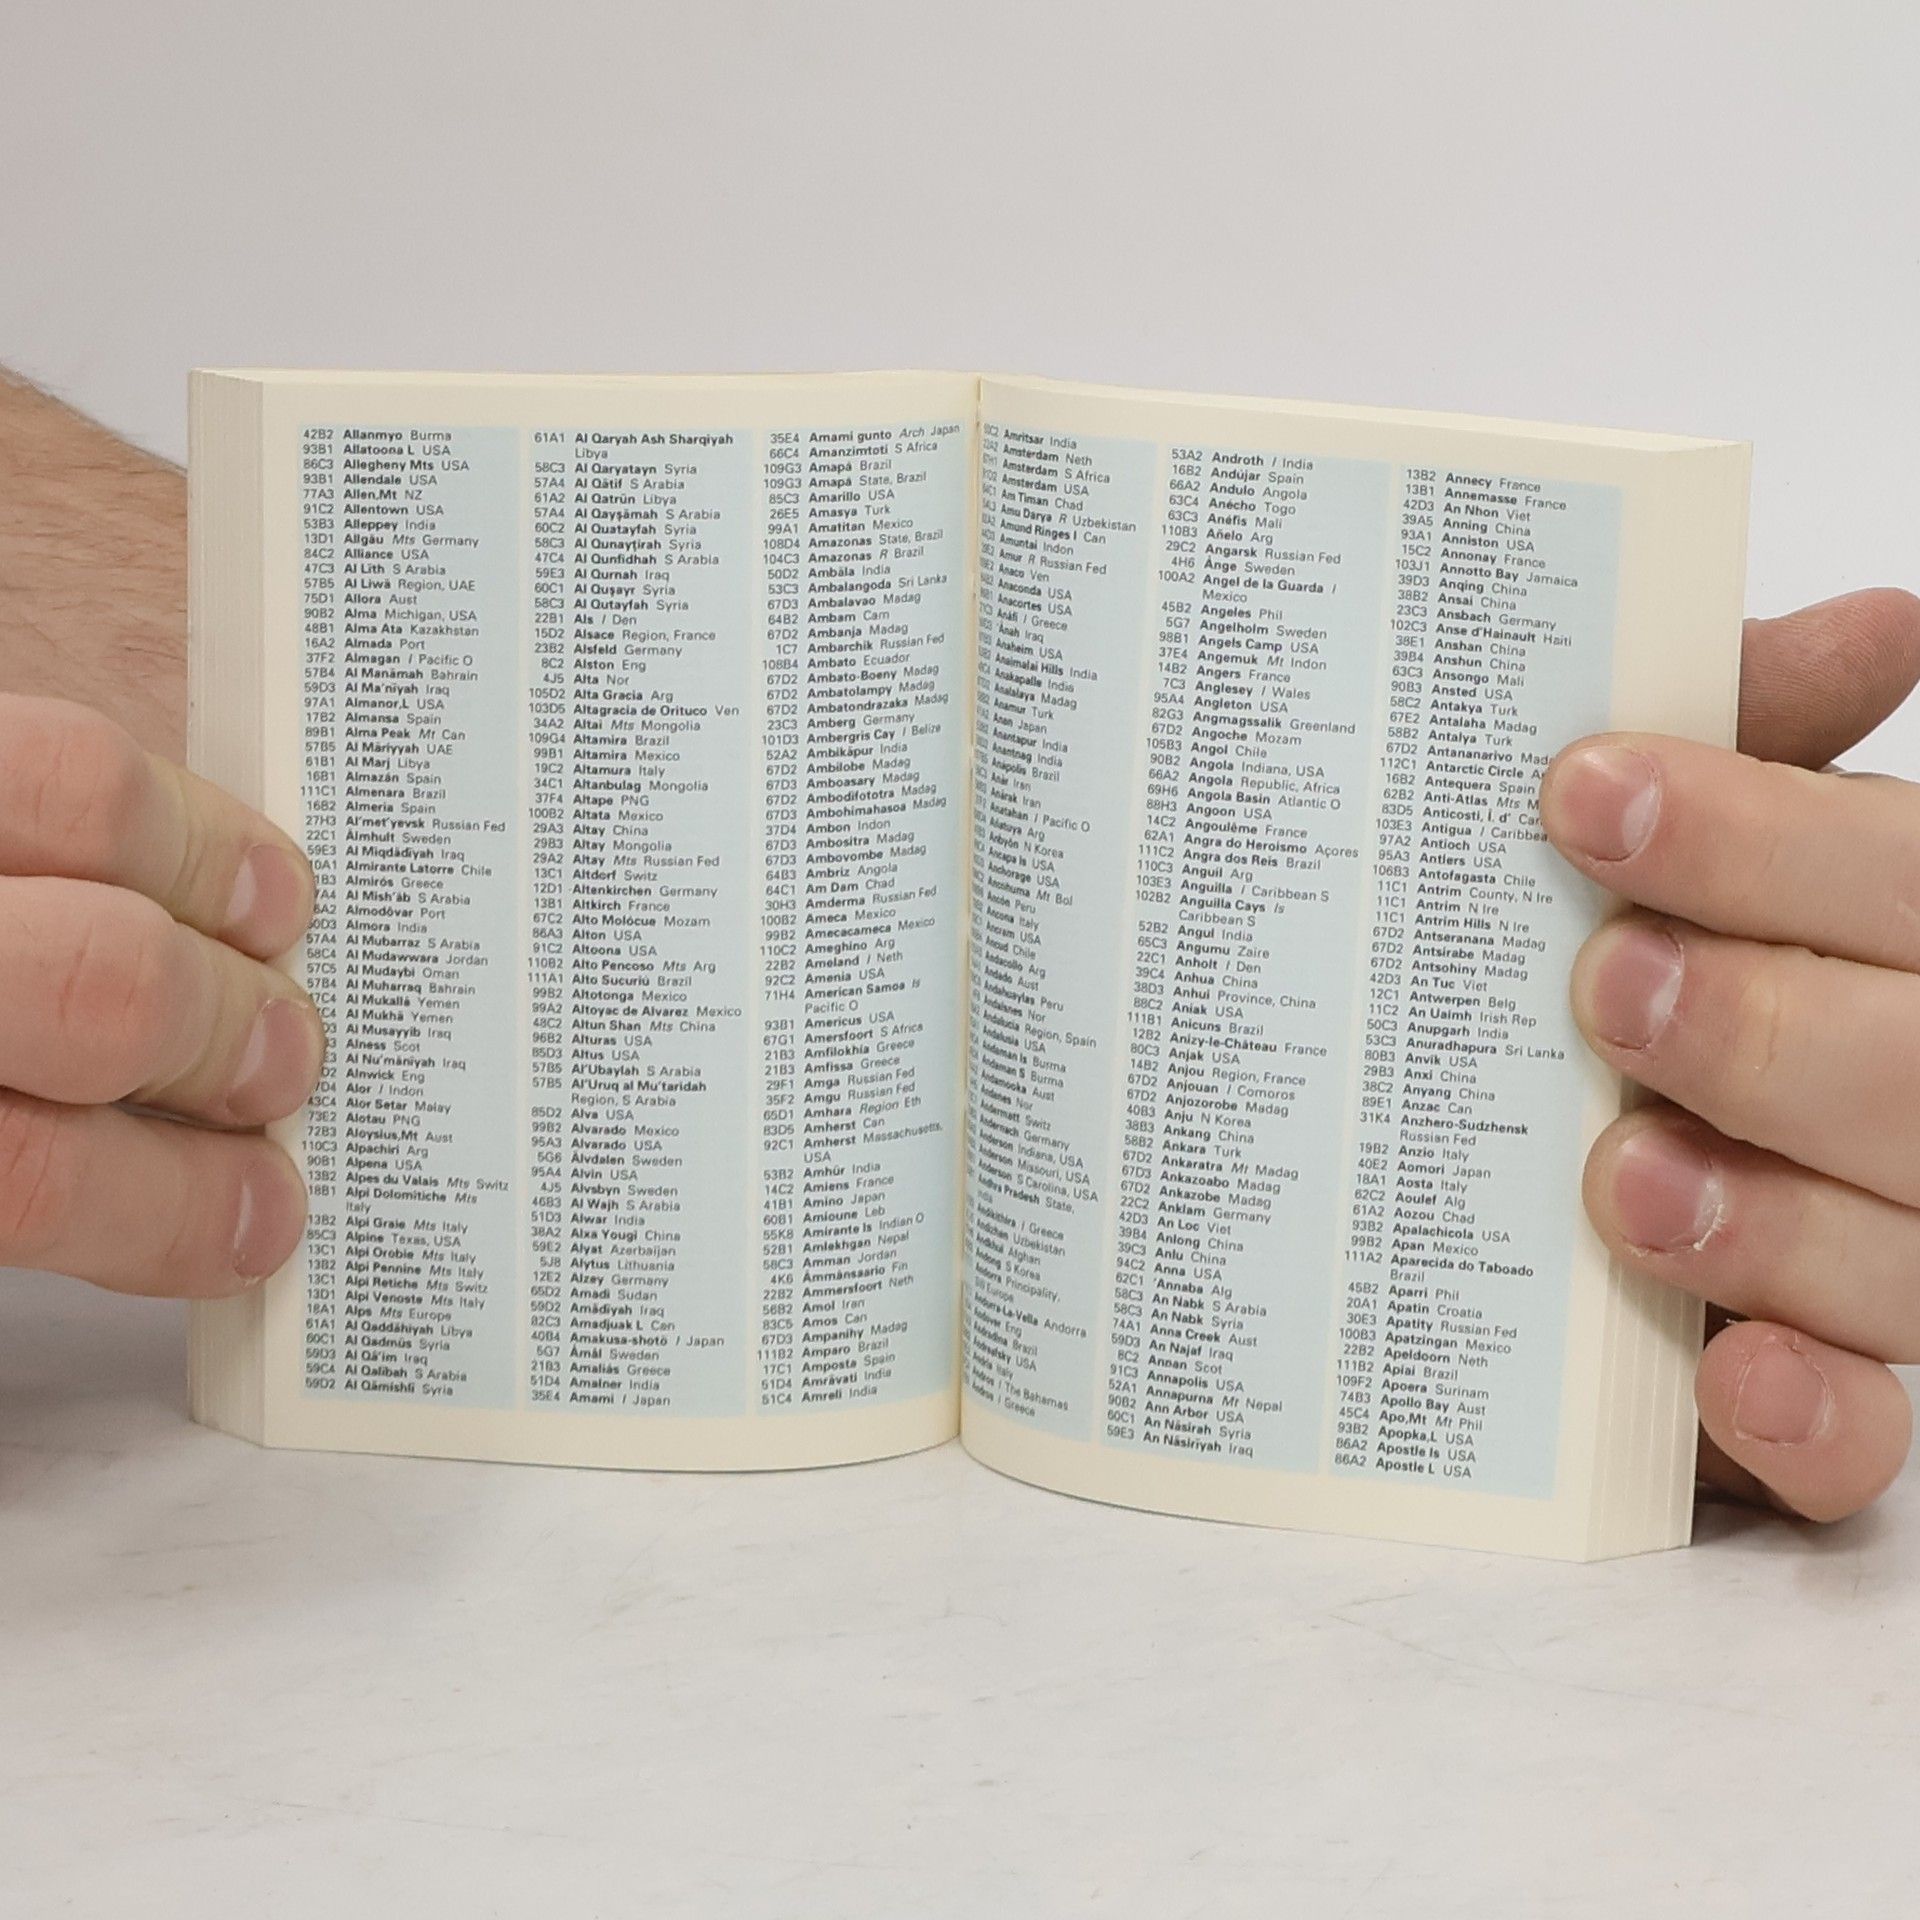 42B2 Allanmyo Burma
93B1 Allatoona L USA
86C3 Allegheny Mts USA
93B1 Allendale USA
77A3 Allen,Mt NZ
91C2 Allentown USA
53B3 Alleppey India
13D1 Allgäu Mts Germany
84C2 Alliance USA
47C3 Al Līth S Arabia
57B5 Al Liwā Region, UAE
75D1 Allora Aust
90B2 Alma Michigan, USA
48B1 Alma Ata Kazakhstan
16A2 Almada Port
37F2 Almagan I Pacific O
57B4 Al Manāmah Bahrain
59D3 Al Ma'nīyah Iraq
97A1 Almanor,L USA
17B2 Almansa Spain
89B1 Alma Peak Mt Can
57B5 Al Māriyyah UAE
61B1 Al Marj Libya
16B1 Almazán Spain
111C1 Almenara Brazil
16B2 Almeria Spain
27H3 Al'met'yevsk Russian Fed
22C1 Älmhult Sweden
59E3 Al Miqdādīyah Iraq
Almirante Latorre Chile
Almirós Greece
Al Mish'āb S Arabia
Almodôvar Port
Almora India
57A4 Al Mubarraz S Arabia
58C4 Al Mudawwara Jordan
57C5 Al Mudaybi Oman
57B4 Al Muharraq Bahrain
Al Mukallā Yemen
Al Mukhā Yemen
Al Musayyib Iraq
Alness Scot
Al Nu'mānīyah Iraq
Alnwick Eng
Alor I Indon
43C4 Alor Setar Malay
73E2 Alotau PNG
72B3 Aloysius,Mt Aust
110C3 Alpachiri Arg
90B1 Alpena USA
13B2 Alpes du Valais Mts Switz
18B1 Alpi Dolomitiche Mts
Italy
13B2 Alpi Graie Mts Italy
85C3 Alpine Texas, USA
13C1 Alpi Orobie Mts Italy
13B2 Alpi Pennine Mts Italy
13C1 Alpi Retiche Mts Switz
13D1 Alpi Venoste Mts Italy
18A1 Alps Mts Europe
61A1 Al Qaddāhiyah Libya
60C1 Al Qadmūs Syria
59D3 Al Qā'im Iraq
59C4 Al Qalibah S Arabia
59D2 Al Qāmishlī Syria
61A1 Al Qaryah Ash Sharqiyah
Libya
58C3 Al Qaryatayn Syria
57A4 Al Qātif S Arabia
61A2 Al Qatrūn Libya
57A4 Al Qayşāmah S Arabia
60C2 Al Quatayfah Syria
58C3 Al Qunayţirah Syria
47C4 Al Qunfidhah S Arabia
59E3 Al Qurnah Iraq
60C1 Al Quşayr Syria
58C3 Al Qutayfah Syria
22B1 Als I Den
15D2 Alsace Region, France
23B2 Alsfeld Germany
8C2 Alston Eng
4J5 Alta Nor
105D2 Alta Gracia Arg
103D5 Altagracia de Orituco Ven
34A2 Altai Mts Mongolia
109G4 Altamira Brazil
99B1 Altamira Mexico
19C2 Altamura Italy
34C1 Altanbulag Mongolia
37F4 Altape PNG
100B2 Altata Mexico
29A3 Altay China
29B3 Altay Mongolia
29A2 Altay Mts Russian Fed
13C1 Altdorf Switz
12D1 Altenkirchen Germany
13B1 Altkirch France
67C2 Alto Molócue Mozam
86A3 Alton USA
91C2 Altoona USA
110B2 Alto Pencoso Mts Arg
111A1 Alto Sucuriú Brazil
99B2 Altotonga Mexico
99A2 Altoyac de Alvarez Mexico
48C2 Altun Shan Mts China
96B2 Alturas USA
85D3 Altus USA
57B5 Al'Ubaylah S Arabia
57B5 Al'Uruq al Mu'taridah
Region, S Arabia
85D2 Alva USA
99B2 Alvarado Mexico
95A3 Alvarado USA
5G6 Älvdalen Sweden
95A4 Alvin USA
4J5 Alvsbyn Sweden
46B3 Al Wajh S Arabia
51D3 Alwar India
38A2 Alxa Yougi China
59E2 Alyat Azerbaijan
5J8 Alytus Lithuania
12E2 Alzey Germany
65D2 Amadi Sudan
59D2 Amādīyah Iraq
82C3 Amadjuak L Can
40B4 Amakusa-shotō I Japan
5G7 Åmål Sweden
21B3 Amaliás Greece
51D4 Amalner India
35E4 Amami I Japan
35E4 Amami gunto Arch Japan
66C4 Amanzimtoti S Africa
109G3 Amapá Brazil
109G3 Amapá State, Brazil
85C3 Amarillo USA
26E5 Amasya Turk
99A1 Amatitan Mexico
108D4 Amazonas State, Brazil
104C3 Amazonas R Brazil
50D2 Ambāla India
53C3 Ambalangoda Sri Lanka
67D3 Ambalavao Madag
64B2 Ambam Cam
67D2 Ambanja Madag
1C7 Ambarchik Russian Fed
108B4 Ambato Ecuador
67D2 Ambato-Boeny Madag
67D2 Ambatolampy Madag
67D2 Ambatondrazaka Madag
23C3 Amberg Germany
101D3 Ambergris Cay I Belize
52A2 Ambikāpur India
67D2 Ambilobe Madag
67D3 Amboasary Madag
67D2 Ambodifototra Madag
67D3 Ambohimahasoa Madag
37D4 Ambon Indon
67D3 Ambositra Madag
67D3 Ambovombe Madag
64B3 Ambriz Angola
64C1 Am Dam Chad
30H3 Amderma Russian Fed
100B2 Ameca Mexico
99B2 Amecacameca Mexico
110C2 Ameghino Arg
22B2 Ameland I Neth
92C2 Amenia USA
71H4 American Samoa Is
Pacific O
93B1 Americus USA
67G1 Amersfoort S Africa
21B3 Amfilokhía Greece
21B3 Amfissa Greece
29F1 Amga Russian Fed
35F2 Amgu Russian Fed
65D1 Amhara Region Eth
83D5 Amherst Can
92C1 Amherst Massachusetts,
USA
53B2 Amhūr India
14C2 Amiens France
41B1 Amino Japan
60B1 Amioune Leb
55K8 Amirante Is Indian O
52B1 Amlekhgan Nepal
58C3 Amman Jordan
4K6 Ämmänsaario Fin
22B2 Ammersfoort Neth
56B2 Amol Iran
83C5 Amos Can
67D3 Ampanihy Madag
111B2 Amparo Brazil
17C1 Amposta Spain
51D4 Amrāvati India
51C4 Amreli India
Amritsar India
Amsterdam Neth
Amsterdam S Africa
Amsterdam USA
Am Timan Chad
Amu Darya R Uzbekistan
Amund Ringes I Can
Amuntai Indon
Amur R Russian Fed
Anaco Ven
Anaconda USA
Anacortes USA
Anáfi I Greece
'Ānah Iraq
Anaheim USA
Anaimalai Hills India
Anakapalle India
Analalaya Madag
Anamur Turk
Anan Japan
Anantapur India
Anantnag India
Anápolis Brazil
Anār Iran
Anārak Iran
Anatahan I Pacific O
Añatuya Arg
Anbyŏn N Korea
Ancapa Is USA
Anchorage USA
Ancohuma Mt Bol
Ancón Peru
Ancona Italy
Ancram USA
Ancud Chile
Andacollo Arg
Andado Aust
Andahuaylas Peru
Andalsnes Nor
Andalucia Region, Spain
Andalusia USA
Andaman Is Burma
Andaman S Burma
Andamooka Aust
Andenes Nor
Andermatt Switz
Andernach Germany
Anderson Indiana, USA
Anderson Missouri, USA
Anderson S Carolina, USA
Andhra Pradesh State,
India
Andikíthira I Greece
Andizhan Uzbekistan
Andkhui Afghan
Andong S Korea
Andorra Principality,
SW Europe
Andorra-La-Vella Andorra
Andover Eng
Andradina Brazil
Andreafsky USA
Andria Italy
Andros I The Bahamas
Andros I Greece
53A2 Androth I India
16B2 Andújar Spain
66A2 Andulo Angola
63C4 Anécho Togo
63C3 Anéfis Mali
110B3 Añelo Arg
29C2 Angarsk Russian Fed
4H6 Ånge Sweden
100A2 Angel de la Guarda I
Mexico
45B2 Angeles Phil
5G7 Angelholm Sweden
98B1 Angels Camp USA
37E4 Angemuk Mt Indon
14B2 Angers France
7C3 Anglesey I Wales
95A4 Angleton USA
82G3 Angmagssalik Greenland
67D2 Angoche Mozam
105B3 Angol Chile
90B2 Angola Indiana, USA
66A2 Angola Republic, Africa
69H6 Angola Basin Atlantic O
88H3 Angoon USA
14C2 Angoulême France
62A1 Angra do Heroismo Açores
111C2 Angra dos Reis Brazil
110C3 Anguil Arg
103E3 Anguilla I Caribbean S
102B2 Anguilla Cays Is
Caribbean S
52B2 Angul India
65C3 Angumu Zaire
22C1 Anholt I Den
39C4 Anhua China
38D3 Anhui Province, China
88C2 Aniak USA
111B1 Anicuns Brazil
12B2 Anizy-le-Château France
80C3 Anjak USA
14B2 Anjou Region, France
67D2 Anjouan I Comoros
67D2 Anjozorobe Madag
40B3 Anju N Korea
38B3 Ankang China
58B2 Ankara Turk
67D2 Ankaratra Mt Madag
67D3 Ankazoabo Madag
67D2 Ankazobe Madag
22C2 Anklam Germany
42D3 An Loc Viet
39B4 Anlong China
39C3 Anlu China
94C2 Anna USA
62C1 'Annaba Alg
58C3 An Nabk S Arabia
58C3 An Nabk Syria
74A1 Anna Creek Aust
59D3 An Najaf Iraq
8C2 Annan Scot
91C3 Annapolis USA
52A1 Annapurna Mt Nepal
90B2 Ann Arbor USA
60C1 An Nāsirah Syria
59E3 An Nāsirīyah Iraq
13B2 Annecy France
13B1 Annemasse France
42D3 An Nhon Viet
39A5 Anning China
93A1 Anniston USA
15C2 Annonay France
103J1 Annotto Bay Jamaica
39D3 Anqing China
38B2 Ansai China
23C3 Ansbach Germany
102C3 Anse d'Hainault Haiti
38E1 Anshan China
39B4 Anshun China
63C3 Ansongo Mali
90B3 Ansted USA
58C2 Antakya Turk
67E2 Antalaha Madag
58B2 Antalya Turk
67D2 Antananarivo Mad
112C1 Antarctic Circle
16B2 Antequera Spain
62B2 Anti-Atlas Mts M
83D5 Anticosti, Î. d'
103E3 Antigua I Caribbea
97A2 Antioch USA
95A3 Antlers USA
106B3 Antofagasta Chile
11C1 Antrim County, N Ire
11C1 Antrim N Ire
11C1 Antrim Hills N Ire
67D2 Antseranana Madag
67D2 Antsirabe Madag
67D2 Antsohiny Madag
42D3 An Tuc Viet
12C1 Antwerpen Belg
11C2 An Uaimh Irish Rep
50C3 Anupgarh India
53C3 Anuradhapura Sri Lanka
80B3 Anvik USA
29B3 Anxi China
38C2 Anyang China
89E1 Anzac Can
31K4 Anzhero-Sudzhensk
Russian Fed
19B2 Anzio Italy
40E2 Aomori Japan
18A1 Aosta Italy
62C2 Aoulef Alg
61A2 Aozou Chad
93B2 Apalachicola USA
99B2 Apan Mexico
111A2 Aparecida do Taboado
Brazil
45B2 Aparri Phil
20A1 Apatin Croatia
30E3 Apatity Russian Fed
100B3 Apatzingan Mexico
22B2 Apeldoorn Neth
111B2 Apiaí Brazil
109F2 Apoera Surinam
74B3 Apollo Bay Aust
45C4 Apo,Mt Mt Phil
93B2 Apopka,L USA
86A2 Apostle Is USA
86A2 Apostle L USA